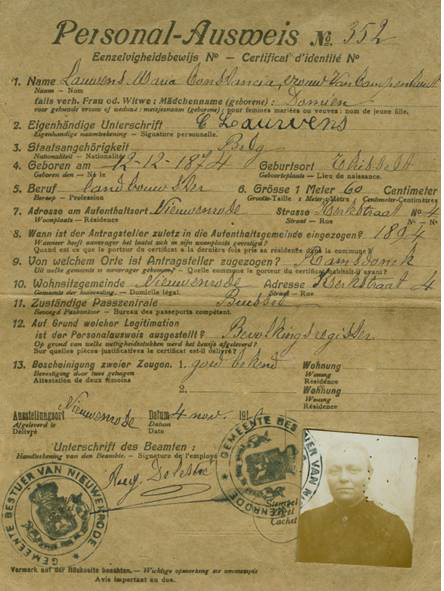 Personal-Ausweis № 352
Eenzelvigheidsbewijs № – Certificat d'identité №
1. Name Lauwens Maria Constancia, vrouw Van Campenhout
Naam – Nom
falls verh. Frau od. Witwe: Mädchenname (geborene):
voor gehuwde vrouw of weduwe: meisjesnaam (geborene): pour femmes mariées ou veuves: nom de jeune fille.
2. Eigenhändige Unterschrift C Lauwens
Eigenhandige naamteekening – Signature personnelle.
3. Staatsangehörigkeit Belg
Nationaliteit – Nationalité
4. Geboren am 12-12-1874 Geburtsort
Geboren den – Né le Geboorteplaats – Lieu de naissance.
5. Beruf landbouwster 6. Grösse 1 Meter 60 Centimeter
Beroep – Profession Grootte-Taille 1 Meter-Mètre Centimeter-Centimètres
7. Adresse am Aufenthaltsort Nieuwenrode Strasse Kerkstraat № 4
Woonplaats – Résidence Straat – Rue №
8. Wann ist der Antragsteller zuletzt in die Aufenthaltsgemeinde eingezogen? 1887
Wanneer heeft aanvrager het laatst zich in zijne woonplaats gevestigd?
Quand est ce que le porteur du certificat a la dernière fois pris sa résidence dans la commune?
9. Von welchem Orte ist Antragsteller zugezogen? Ramsdonck
Uit welke gemeente is aanvrager gekomen? – Quelle commune le porteur du certificat habitait-il avant?
10. Wohnsitzgemeinde Nieuwenrode Adresse Kerkstraat 4
Gemeente der huisvesting – Domicile légal Straat – Rue
11. Zuständige Passzentrale Brussel
Bevoegd Paskantoor – Bureau des passeports compétent.
12. Auf Grund welcher Legitimation
ist der Personalausweis ausgestellt? Bevolkingsregister
Op grond van welke rechtigheidsbewijzen werd het bewijs afgeleverd?
Sur quelles pièces justificatives le certificat est-il délivré?
13. Bescheinigung zweier Zeugen. 1. goed bekend Wohnung
Bevestiging door twee getuigen Woning
Attestation de deux témoins Résidence
2. Wohnung
Woning
Résidence
Ausstellungsort Nieuwenrode Datum 4 nov. 191
Afgeleverd te Datum
Délivré Date
Unterschrift des Beamten:
Handteekening van den Beambte. – Signature de l'employé
Stempel
Cachet
GEMEENTE BESTUUR VAN NIEUWENRODE
GEMEENTE BEST
NRODE
UUR VAN N
Vermerk auf der Rückseite beachten. – Wichtige opmerking ter ommezijde
Avis important au dos.